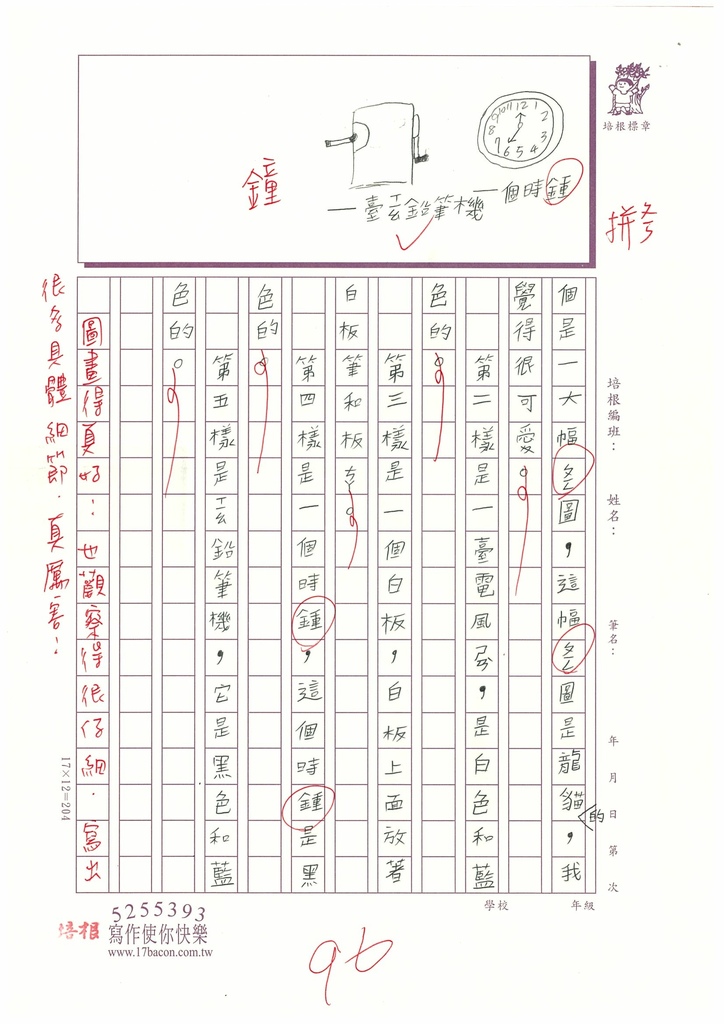 培根標章
鐘
一個時鍾
一臺ㄒㄧㄠ鉛筆機
拼
培根編班： 姓名： 筆名： 年 月 日 第 次
學校 年級
個是一大幅ㄆㄥ圖，這幅ㄆㄥ圖是龍貓，我
的
覺得很可愛。
第二樣是一臺電風ㄕㄢ，是白色和藍
色的。
第三樣是一個白板，白板上面放著
白板筆和板ㄘㄚ。
第四樣是一個時鍾，這個時鍾是黑
色的。
第五樣是ㄒㄧㄠ鉛筆機，它是黑色和藍
色的。
圖畫得真好！也觀察得很仔細．寫出
很多具體細節．真厲害！
17×12=204
5255393
培根 寫作使你快樂
www.17bacon.com.tw
96